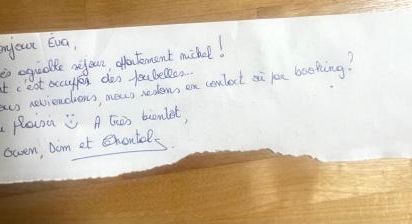 onjour Eva,
ès agréable séjour appartement nickel !
t c'est occupés des poubelles...
ous reviendrons, nous restons en contact où par booking ?
plaisir ☺ A très bientôt,
Gwen, Dom et Chantal